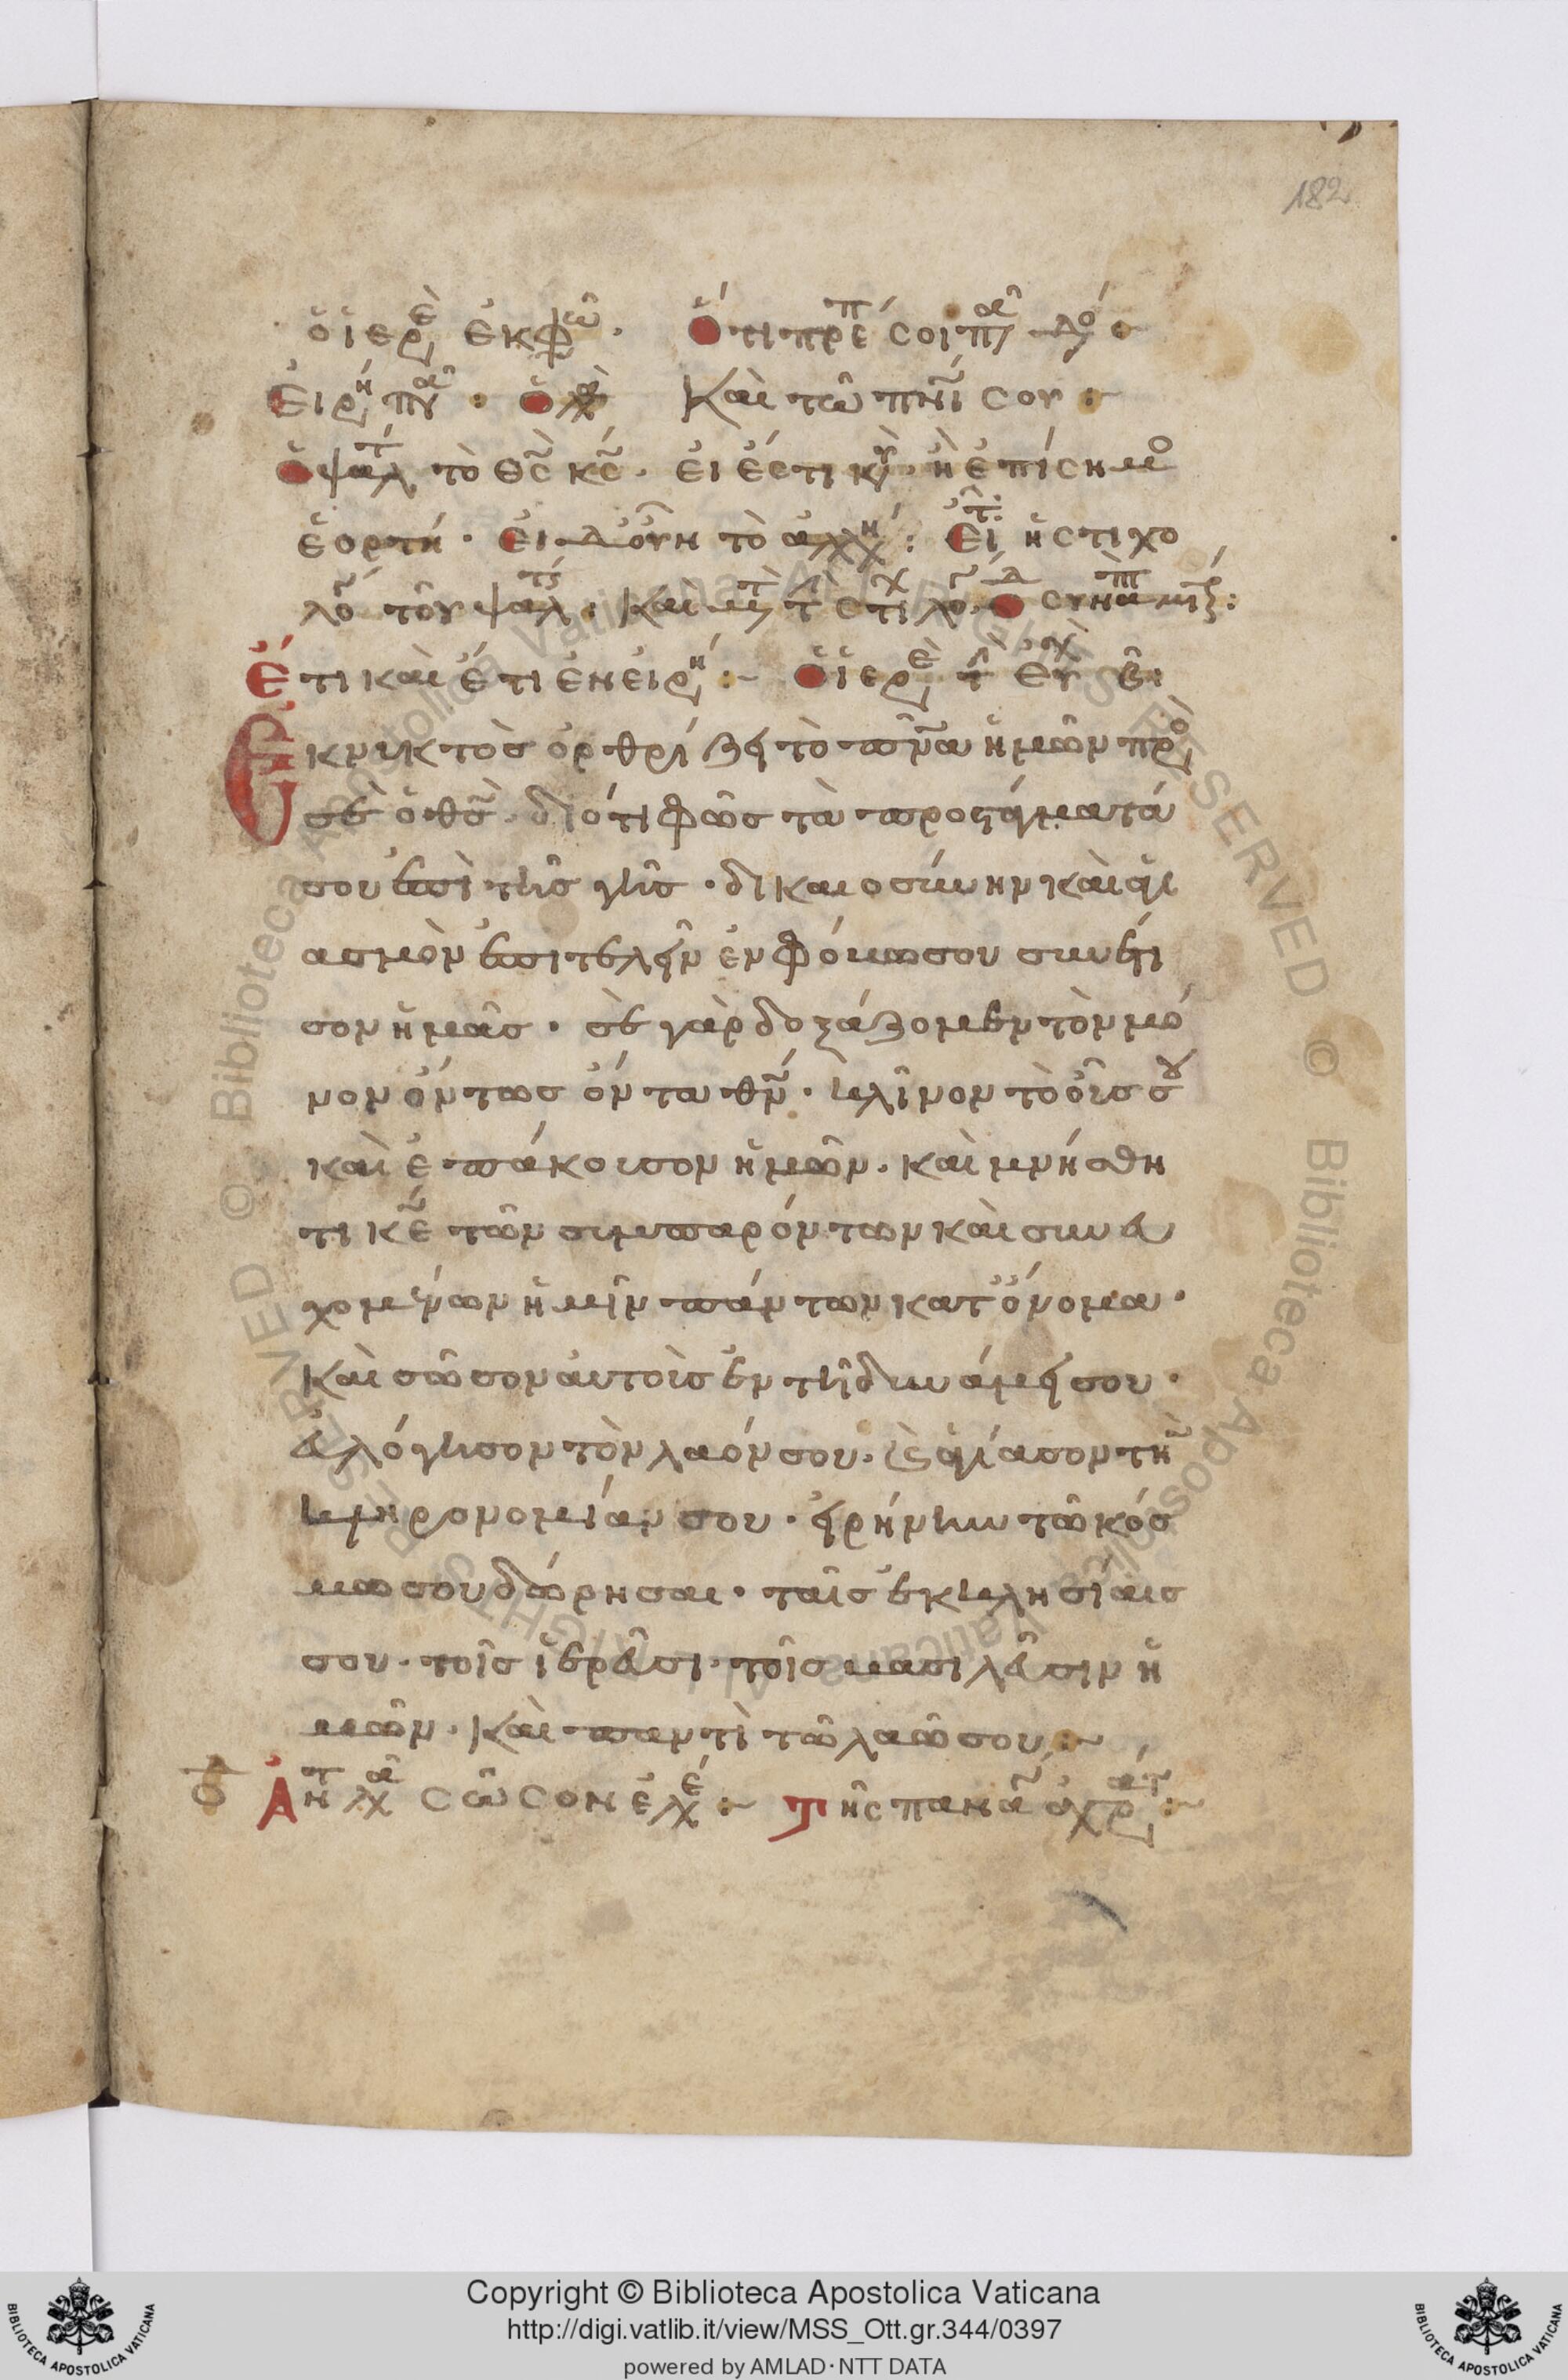 182
ὁ ἱερε ἐκφω. Ὅτι πρέπ σοι πα δο :~
Εἰρή πα : ὁ λα Καὶ τῶ πνι σου :~
Ὁ ψαλτ τὸ θς κς. εἰ ἔστι κυ. ἢ ἐπίσημο
ἑορτή. εἰ δ' οὖν τὸ ἀλλη : Εἶτ ἡ στιχο
λο τοῦ ψαλτ : καὶ μετ τ στιχολο. Ὁ
Ἔτι καὶ ἔτι ἐν εἰρή :~ Ὁ ἱερε τ εὐχ β :
Ἐκ νυκτὸς ὀρθρίζει τὸ πνα ἡμῶν πρὸ
σὲ ὁ θς. διότι φῶς τὰ προστάγματά
σου ἐπὶ τῆς γῆς. δικαιοσύνην καὶ ἁγι
ασμὸν ἐπιτελεῖν ἐν φόβω σου συνέτι
σον ἡμᾶς. σὲ γὰρ δοξάζομεν τὸν μό
νον ὄντως ὄντα θν. κλῖνον τὸ οὖς σου
καὶ ἐπάκουσον ἡμῶν. καὶ μνήσθη
τι κε τῶν συμπαρόντων καὶ συνευ
χομένων ἡμῖν πάντων κατ' ὄνομα.
Καὶ σῶσον αὐτοὺς ἐν τῆ δυνάμει σου.
εὐλόγησον τὸν λαόν σου. καὶ ἁγίασον τὴν
κληρονομίαν σου. εἰρήνην τῶ κόσ
μω σου δώρησαι. ταῖς ἐκκλησίαις
σου. τοῖς ἱερεῦσι. τοῖς βασιλεῦσιν ἡ
μῶν. Καὶ παντὶ τῶ λαῶ σου :~
Ἀντλα σῶσον ἐλέ :~ Τῆς πανα ἀχρατ :~
Copyright © Biblioteca Apostolica Vaticana
http://digi.vatlib.it/view/MSS_Ott.gr.344/0397
powered by AMLAD·NTT DATA